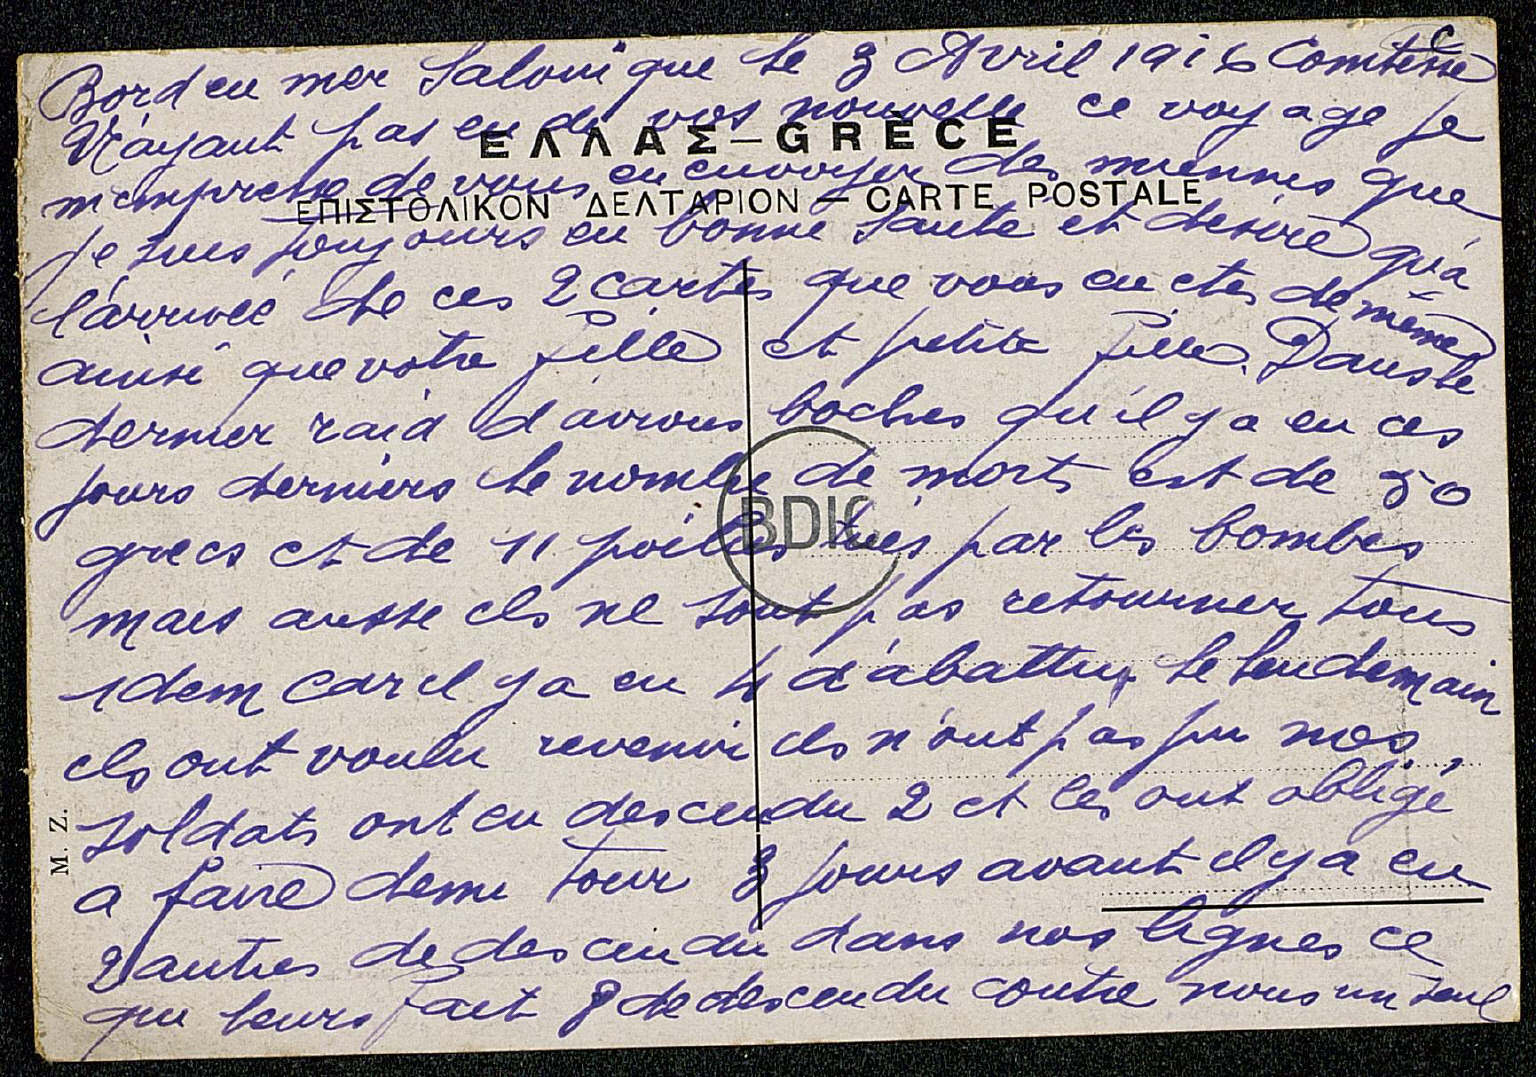 Bord en mer Salonique le 3 Avril 1916 Comtesse
N'ayant pas eu de vos nouvelle ce voyage je
ΕΛΛΑΣ – GRÈCE
m'empresse de vous en envoyer des miennes que
ΕΠΙΣΤΟΛΙΚΟΝ ΔΕΛΤΑΡΙΟΝ – CARTE POSTALE
je suis toujours en bonne santé et désire qu'a
l'arrivée de ces 2 cartes que vous en etes de même
ainsi que votre fille et petite fille. Dans le
dernier raid d'avions boches qu'il y a eu ces
jours derniers le nombre de morts est de 50
grecs et de 11 poilus tués par les bombes
BDIC
mais aussi ils ne sont pas retourner tous
idem car il y a eu 4 d'abattus le lendemain
ils ont voulu revenir ils n'ont pas pu nos
soldats ont eu descendu 2 et les ont obligé
a faire demi tour 3 jours avant il y a eu
2 autres de descendu dans nos lignes ce
qui leurs fait 8 de descendu contre nous un seul
M. Z.